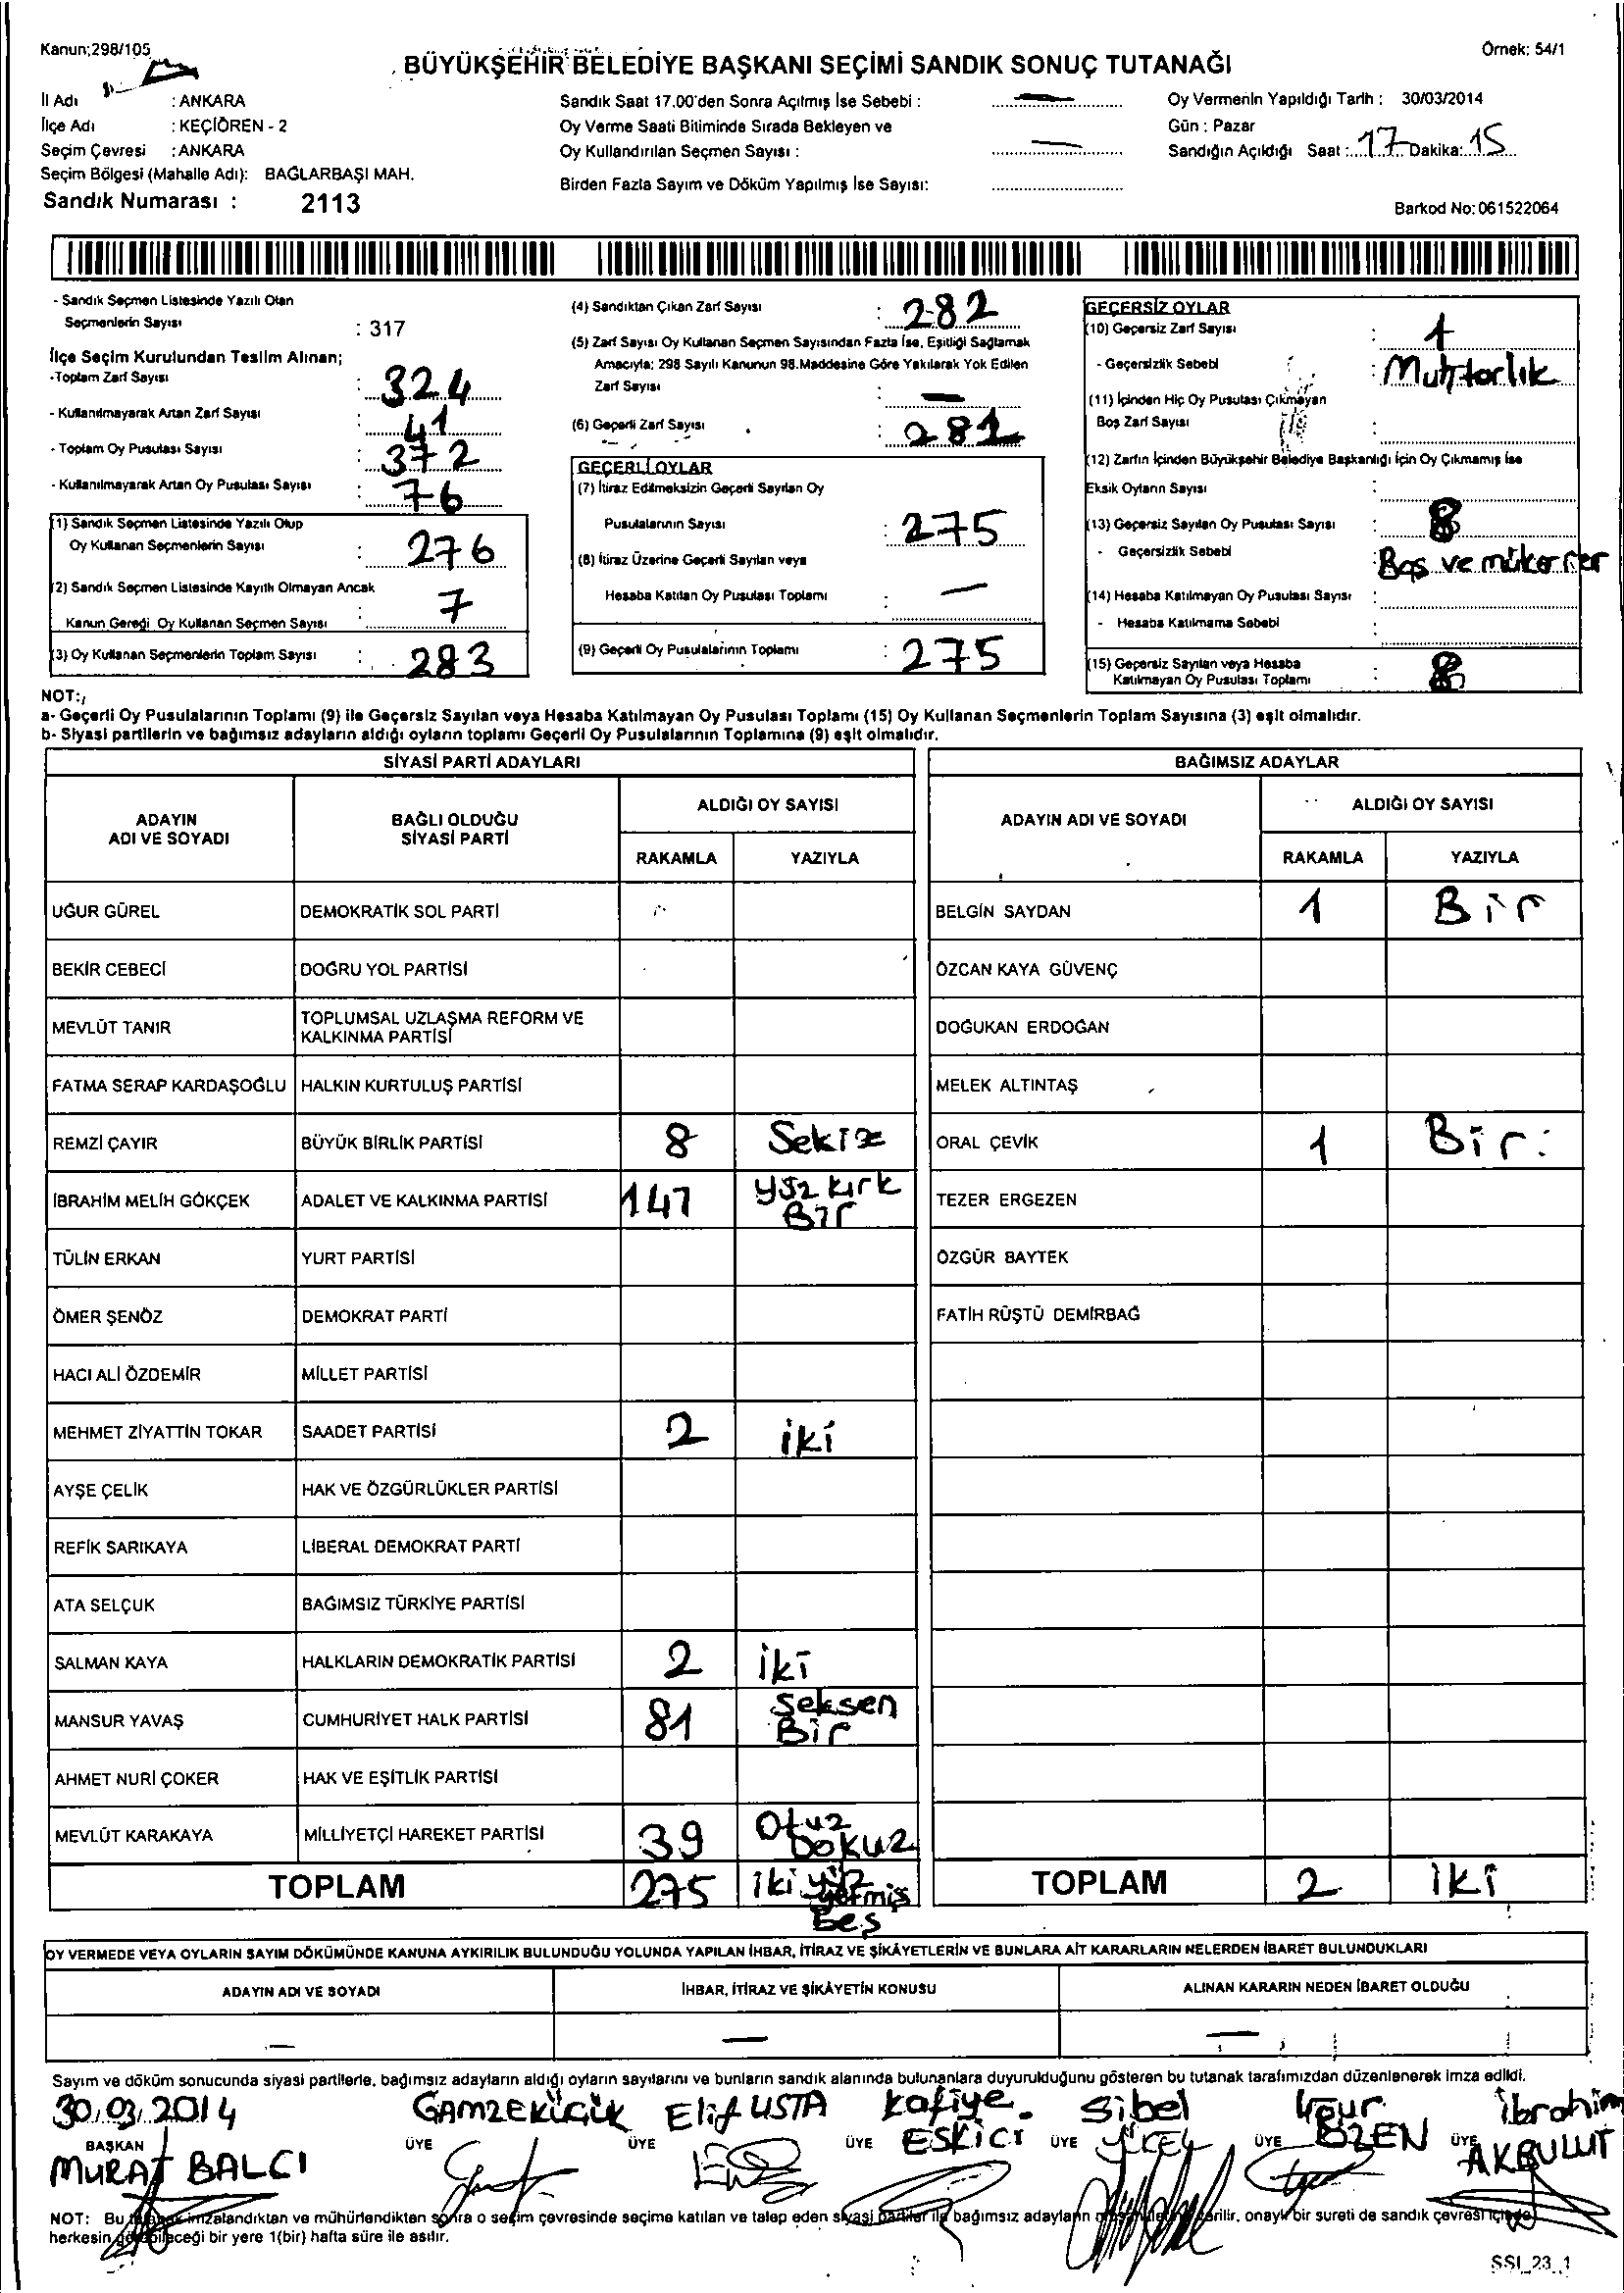 Kanun;298/105
Örnek: 54/1
BÜYÜKŞEHİR BELEDİYE BAŞKANI SEÇİMİ SANDIK SONUÇ TUTANAĞI
İl Adı : ANKARA
İlçe Adı : KEÇİÖREN - 2
Seçim Çevresi : ANKARA
Seçim Bölgesi (Mahalle Adı): BAĞLARBAŞI MAH.
Sandık Numarası : 2113
Sandık Saat 17.00'den Sonra Açılmış İse Sebebi :
Oy Verme Saati Bitiminde Sırada Bekleyen ve
Oy Kullandırılan Seçmen Sayısı :
Birden Fazla Sayım ve Döküm Yapılmış İse Sayısı:
Oy Vermenin Yapıldığı Tarih : 30/03/2014
Gün : Pazar
Sandığın Açıldığı Saat : 17 Dakika: 15
Barkod No: 061522064
- Sandık Seçmen Listesinde Yazılı Olan
Seçmenlerin Sayısı : 317
İlçe Seçim Kurulundan Teslim Alınan;
-Toplam Zarf Sayısı : 324
- Kullanılmayarak Artan Zarf Sayısı : 41
- Toplam Oy Pusulası Sayısı : 372
- Kullanılmayarak Artan Oy Pusulası Sayısı : 76
(1) Sandık Seçmen Listesinde Yazılı Olup
Oy Kullanan Seçmenlerin Sayısı : 276
(2) Sandık Seçmen Listesinde Kayıtlı Olmayan Ancak
Kanun Gereği Oy Kullanan Seçmen Sayısı : 7
(3) Oy Kullanan Seçmenlerin Toplam Sayısı : 283
(4) Sandıktan Çıkan Zarf Sayısı : 282
(5) Zarf Sayısı Oy Kullanan Seçmen Sayısından Fazla İse, Eşitliği Sağlamak
Amacıyla; 298 Sayılı Kanunun 98.Maddesine Göre Yakılarak Yok Edilen
Zarf Sayısı : —
(6) Geçerli Zarf Sayısı : 281
GEÇERLİ OYLAR
(7) İtiraz Edilmeksizin Geçerli Sayılan Oy
Pusulalarının Sayısı : 275
(8) İtiraz Üzerine Geçerli Sayılan veya
Hesaba Katılan Oy Pusulası Toplamı : —
(9) Geçerli Oy Pusulalarının Toplamı : 275
GEÇERSİZ OYLAR
(10) Geçersiz Zarf Sayısı : 1
- Geçersizlik Sebebi : Muhtarlık
(11) İçinden Hiç Oy Pusulası Çıkmayan
Boş Zarf Sayısı :
(12) Zarfın İçinden Büyükşehir Belediye Başkanlığı İçin Oy Çıkmamış İse
Eksik Oyların Sayısı
(13) Geçersiz Sayılan Oy Pusulası Sayısı : 8
- Geçersizlik Sebebi : Boş ve mükerrer
(14) Hesaba Katılmayan Oy Pusulası Sayısı :
- Hesaba Katılmama Sebebi :
(15) Geçersiz Sayılan veya Hesaba
Katılmayan Oy Pusulası Toplamı : 8
NOT:;
a- Geçerli Oy Pusulalarının Toplamı (9) ile Geçersiz Sayılan veya Hesaba Katılmayan Oy Pusulası Toplamı (15) Oy Kullanan Seçmenlerin Toplam Sayısına (3) eşit olmalıdır.
b- Siyasi partilerin ve bağımsız adayların aldığı oyların toplamı Geçerli Oy Pusulalarının Toplamına (9) eşit olmalıdır.
SİYASİ PARTİ ADAYLARI
ADAYIN ADI VE SOYADI BAĞLI OLDUĞU SİYASİ PARTİ ALDIĞI OY SAYISI
RAKAMLA YAZIYLA
UĞUR GÜREL DEMOKRATİK SOL PARTİ
BEKİR CEBECİ DOĞRU YOL PARTİSİ
MEVLÜT TANIR TOPLUMSAL UZLAŞMA REFORM VE KALKINMA PARTİSİ
FATMA SERAP KARDAŞOĞLU HALKIN KURTULUŞ PARTİSİ
REMZİ ÇAYIR BÜYÜK BİRLİK PARTİSİ 8 Sekiz
İBRAHİM MELİH GÖKÇEK ADALET VE KALKINMA PARTİSİ 141 yüz kırk Bir
TÜLİN ERKAN YURT PARTİSİ
ÖMER ŞENÖZ DEMOKRAT PARTİ
HACI ALİ ÖZDEMİR MİLLET PARTİSİ
MEHMET ZİYATTİN TOKAR SAADET PARTİSİ 2 iki
AYŞE ÇELİK HAK VE ÖZGÜRLÜKLER PARTİSİ
REFİK SARIKAYA LİBERAL DEMOKRAT PARTİ
ATA SELÇUK BAĞIMSIZ TÜRKİYE PARTİSİ
SALMAN KAYA HALKLARIN DEMOKRATİK PARTİSİ 2 iki
MANSUR YAVAŞ CUMHURİYET HALK PARTİSİ 81 Seksen Bir
AHMET NURİ ÇOKER HAK VE EŞİTLİK PARTİSİ
MEVLÜT KARAKAYA MİLLİYETÇİ HAREKET PARTİSİ 39 Otuz Dokuz
TOPLAM 275 iki yüz yetmiş Beş
BAĞIMSIZ ADAYLAR
ADAYIN ADI VE SOYADI ALDIĞI OY SAYISI
RAKAMLA YAZIYLA
BELGİN SAYDAN 1 Bir
ÖZCAN KAYA GÜVENÇ
DOĞUKAN ERDOĞAN
MELEK ALTINTAŞ
ORAL ÇEVİK 1 Bir
TEZER ERGEZEN
ÖZGÜR BAYTEK
FATİH RÜŞTÜ DEMİRBAĞ
TOPLAM 2 iki
OY VERMEDE VEYA OYLARIN SAYIM DÖKÜMÜNDE KANUNA AYKIRILIK BULUNDUĞU YOLUNDA YAPILAN İHBAR, İTİRAZ VE ŞİKÂYETLERİN VE BUNLARA AİT KARARLARIN NELERDEN İBARET BULUNDUKLARI
ADAYIN ADI VE SOYADI İHBAR, İTİRAZ VE ŞİKÂYETİN KONUSU ALINAN KARARIN NEDEN İBARET OLDUĞU
— — —
Sayım ve döküm sonucunda siyasi partilerle, bağımsız adayların aldığı oyların sayılarını ve bunların sandık alanında bulunanlara duyurulduğunu gösteren bu tutanak tarafımızdan düzenlenerek imza edildi.
30.03.2014
BAŞKAN MURAT BALCI
GAMZE KÜÇÜK ÜYE
Elif USTA ÜYE
Kafiye ESKİCİ ÜYE
Sibel YÜCEL ÜYE
Uğur ÖZEN ÜYE
ibrahim AKBULUT ÜYE
NOT: Bu tutanak imzalandıktan ve mühürlendikten sonra o seçim çevresinde seçime katılan ve talep eden siyasi partiler ile bağımsız adayların verilir, onaylı bir sureti de sandık çevresi içinde
herkesin görebileceği bir yere 1(bir) hafta süre ile asılır.
SSI_23_1